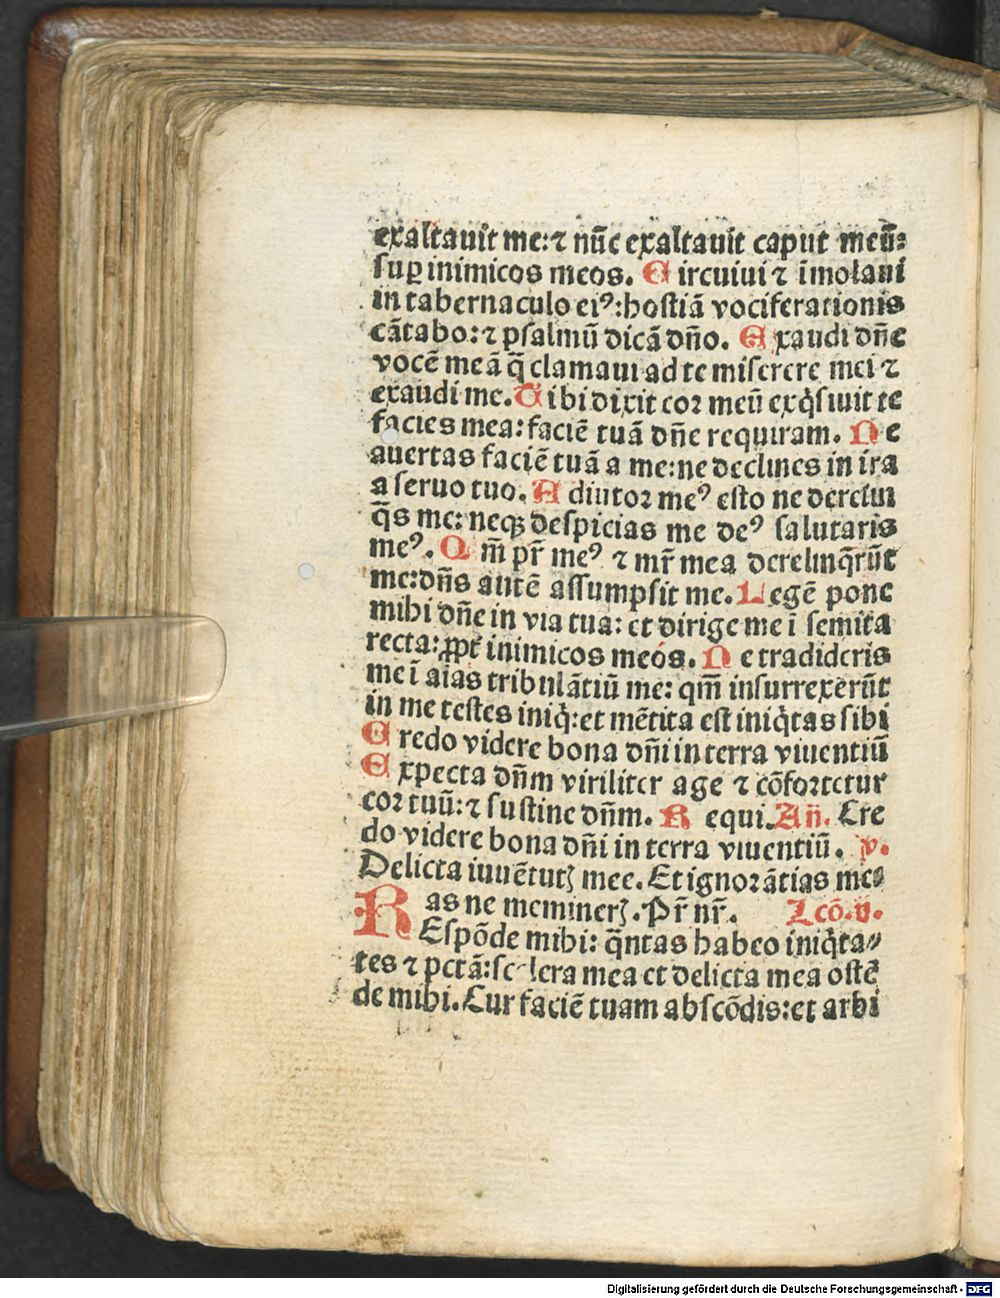 exaltauit me:⁊ nūc exaltauit caput meū:
suꝑ inimicos meos. Circuiui ⁊ īmolaui
in tabernaculo eiꝰ:hostiā vociferationis
cātabo:⁊ psalmū dicā dño. Exaudi dñe
vocē meā q̄ clamaui ad te miserere mei ⁊
exaudi me. Tibi dixit cor meū exq̇siuit te
facies mea: faciē tuā dñe requiram. Ne
auertas faciē tuā a me:ne declines in ira
a seruo tuo. Adiutor meꝰ esto ne derelin
q̄s me: neqꝫ despicias me deꝰ salutaris
meꝰ. Qm̄ pr̄ meꝰ ⁊ mr̄ mea derelinq̄rūt
me:dñs autē assumpsit me. Legē pone
mihi dñe in via tua: et dirige me ī semita
recta: ꝓpt̄ inimicos meos. Ne tradideris
me ī aīas tribulātiū me: qm̄ insurrexerūt
in me testes iniq̇:et mētita est iniq̇tas sibi
Credo videre bona dñi in terra viuentiū
Expecta dñm viriliter age ⁊ cōfortetur
cor tuū:⁊ sustine dñm. Requi. Añ. Cre
do videre bona dñi in terra viuentiū. v.
Delicta iuuētutꝭ mee. Et ignorātias me
as ne meminerꝭ. Pr̄ nr̄. Lcō.v.
REspōde mihi: q̄ntas habeo iniq̇ta⸗
tes ⁊ pctā:scelera mea et delicta mea ostē
de mihi. Cur faciē tuam abscōdis:et arbi
Digitalisierung gefördert durch die Deutsche Forschungsgemeinschaft - DFG